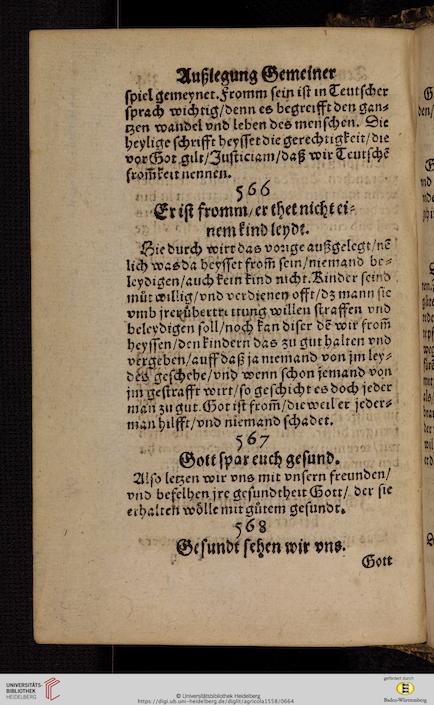 Außlegung Gemeiner
spiel gemeynet. Fromm sein ist in Teutscher
sprach wichtig/denn es begreifft den gan-
tzen wandel vnd leben des menschen. Die
heylige schrifft heysset die gerechtigkeit/die
vor Got gilt/Justiciam/daß wir Teutschẽ
from̃keit nennen.
566
Er ist fromm/er thet nicht ei-
nem kind leydt.
Hie durch wirt das vorige außgelegt/nẽ
lich was da heysset from̃ sein/niemand be-
leydigen/auch kein kind nicht. Kinder seind
můt willig/vnd verdienen offt/dz mann sie
vmb jre übertrettung willen straffen vnd
beleydigen soll/noch kan diser dẽ wir from̃
heyssen/den kindern das zu gut halten vnd
vergeben/auff daß ja niemand von jm ley-
des geschehe/vnd wenn schon jemand von
jm gestrafft wirt/so geschicht es doch jeder
man zu gut. Got ist from̃/die weil er jeder-
man hilfft/vnd niemand schadet.
567
Gott spar euch gesund.
Also letzen wir vns mit vnsern freunden/
vnd befelhen jre gesundtheit Gott/ der sie
erhalten wölle mit gůtem gesundt.
568
Gesundt sehen wir vns.
Gott
UNIVERSITÄTS-
BIBLIOTHEK
HEIDELBERG
© Universitätsbibliothek Heidelberg
https://digi.ub.uni-heidelberg.de/diglit/agricola1558/0664
gefördert durch
Baden-Württemberg